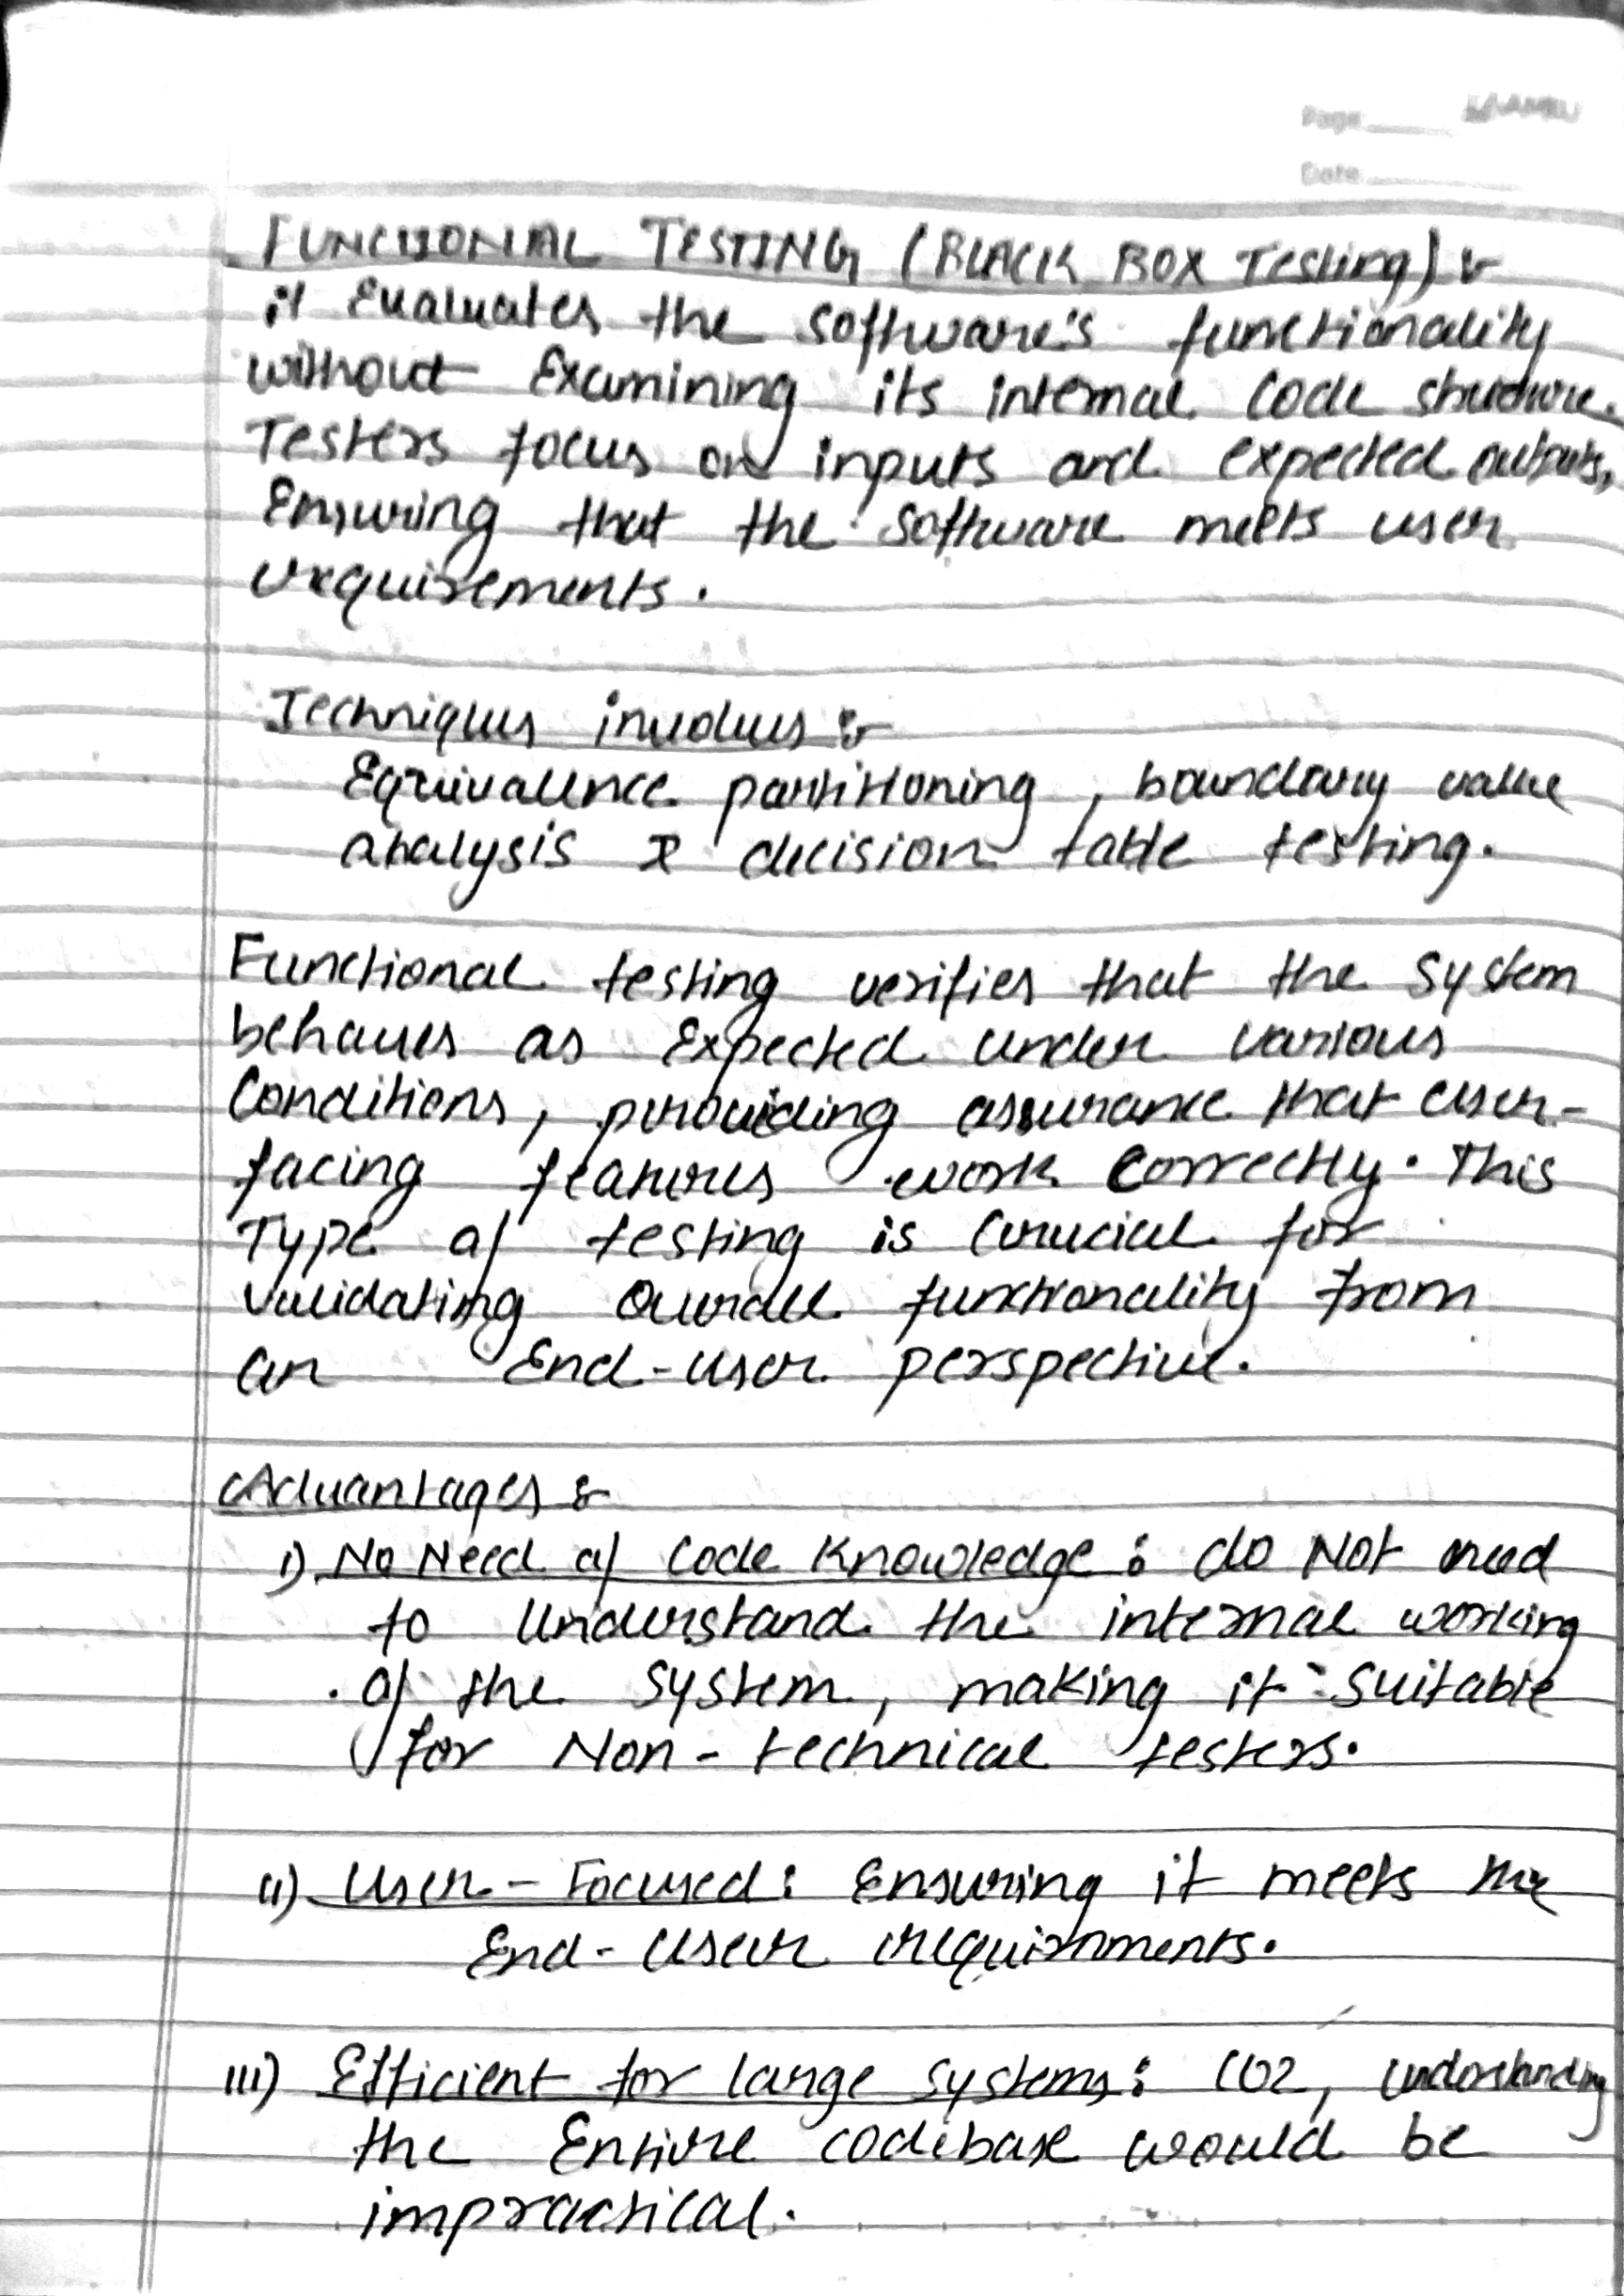 Page
Date
FUNCTIONAL TESTING (BLACK BOX Testing) :-
it Evaluates the software's functionality
without Examining its internal code structure.
Testers focus on inputs and expected outputs,
Ensuring that the software meets user
requirements.
Techniques involves :-
Equivalence partitioning, boundary value
analysis & decision table testing.
Functional testing verifies that the system
behaves as Expected under various
Conditions, providing assurance that user-
facing features work correctly. This
Type of testing is crucial for
validating overall functionality from
an End-user perspective.
Advantages :-
i) No Need of Code Knowledge : do Not need
to understand the internal working
of the system, making it suitable
for Non-technical testers.
ii) User-Focused: Ensuring it meets the
End-user requirnments.
iii) Efficient for large systems: coz, understanding
the Entire codebase would be
impractical.